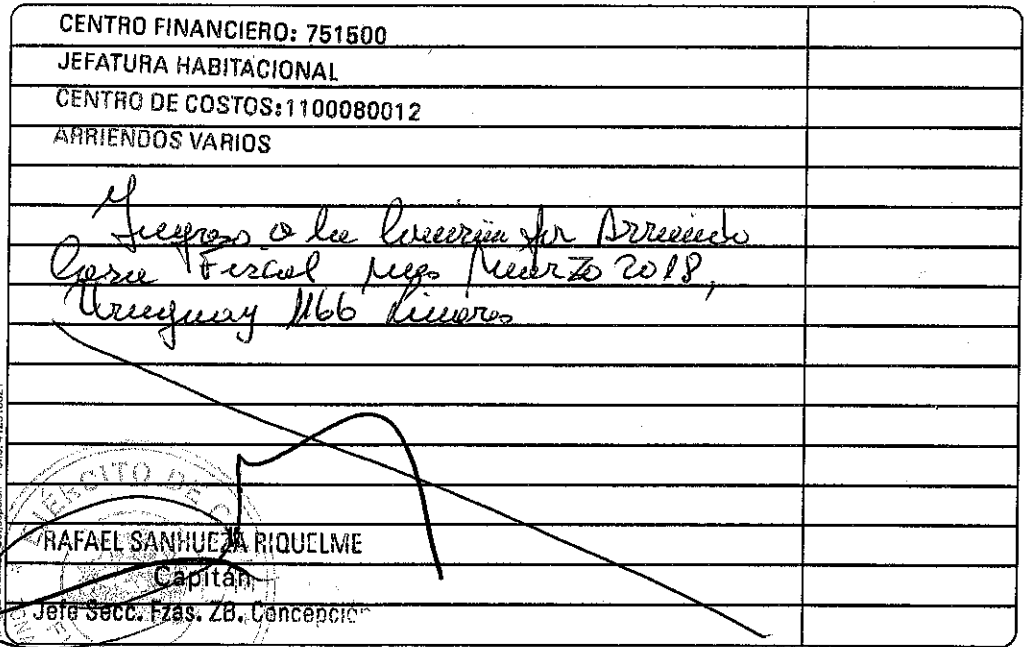 CENTRO FINANCIERO: 751500
JEFATURA HABITACIONAL
CENTRO DE COSTOS:1100080012
ARRIENDOS VARIOS
Ingreso a la por Arriendo
Casa Fiscal mes Marzo 2018,
Uruguay 1166 Linares
EJÉRCITO DE
RAFAEL SANHUEZA RIQUELME
Capitán
Jefe Secc. Fzas. ZB. Concepción